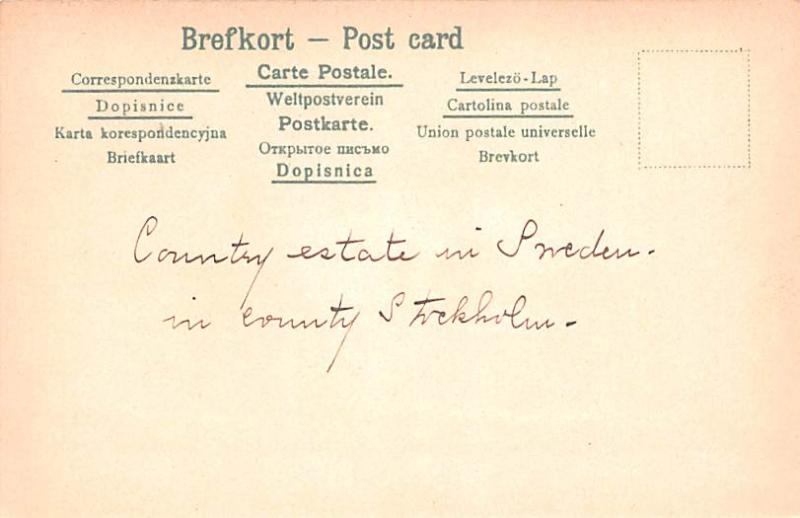 Brefkort — Post card
Correspondenzkarte
Dopisnice
Karta korespondencyjna
Briefkaart
Carte Postale.
Weltpostverein
Postkarte.
Открытое письмо
Dopisnica
Levelezö-Lap
Cartolina postale
Union postale universelle
Brevkort
Country estate in Sweden.
in county Stockholm.